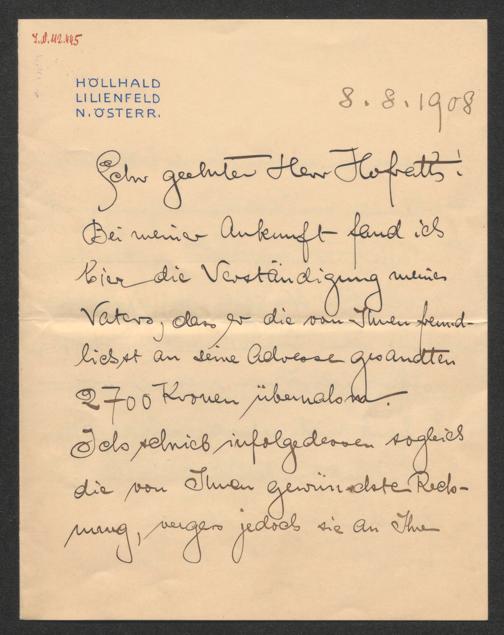 I.N. 112.445
HÖLLHALD
LILIENFELD
N. ÖSTERR.
8. 8. 1908
Sehr geehrter Herr Hofrath!
Bei meiner Ankunft fand ich
hier die Verständigung meines
Vaters, dass er die von Ihnen freund-
lichst an seine Adresse gesandten
2700 Kronen übernahm.
Ich schrieb infolgedessen sogleich
die von Ihnen gewünschte Rech-
nung, vergass jedoch sie an Ihre